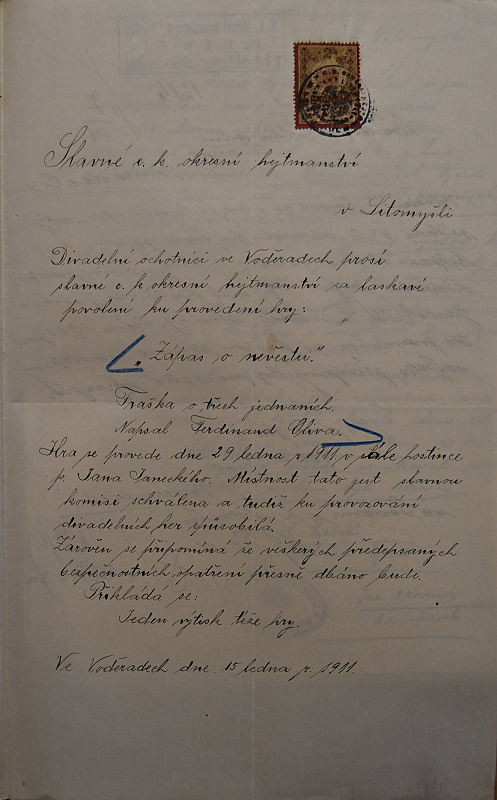 Slavné c. k. okresní hejtmanství
v Litomyšli
Divadelní ochotníci ve Voděradech prosí
slavné c. k. okresní hejtmanství za laskavé
povolení ku provedení hry:
„Zápas o nevěstu."
Fraška o třech jednaních.
Napsal Ferdinand Oliva.
Hra se provede dne 29 ledna r 1911, v sále hostince
p. Jana Janeckého. Místnost tato jest slavnou
komisí schválena a tudíž ku provozování
divadelních her způsobilá.
Zároveň se připomíná že veškerých předepsaných
bezpečnostních opatření přesně dbáno bude.
Přikládá se:
Jeden výtisk téže hry.
Ve Voděradech dne 15 ledna r. 1911.